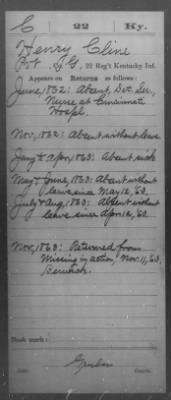 C 22 Ky.
Henry Cline
Pvt., Co. G, 22 Reg't Kentucky Inf.
Appears on Returns as follows:
June, 1862: Absent, Det. Ser.,
Nurse at Cincinnati
Hospl.
Nov, 1862: Absent without leave
Jany & Apr, 1863: Absent sick
May & June, 1863: Absent without
leave since May 12, '63.
July & Aug, 1863: Absent without
leave since Apr 12, '63.
Nov, 1863: Returned from
Missing in action, Nov. 11, '63,
Berwick.
Book mark:
(546)
Copyist.